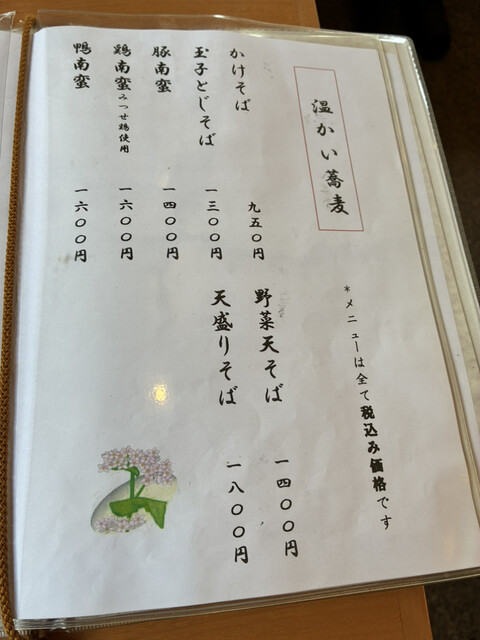 温かい蕎麦
かけそば 九五〇円
玉子とじそば 一三〇〇円
豚南蛮 一四〇〇円
鶏南蛮 みつせ鶏使用 一六〇〇円
鴨南蛮 一六〇〇円
*メニューは全て税込み価格です
野菜天そば 一四〇〇円
天盛りそば 一八〇〇円